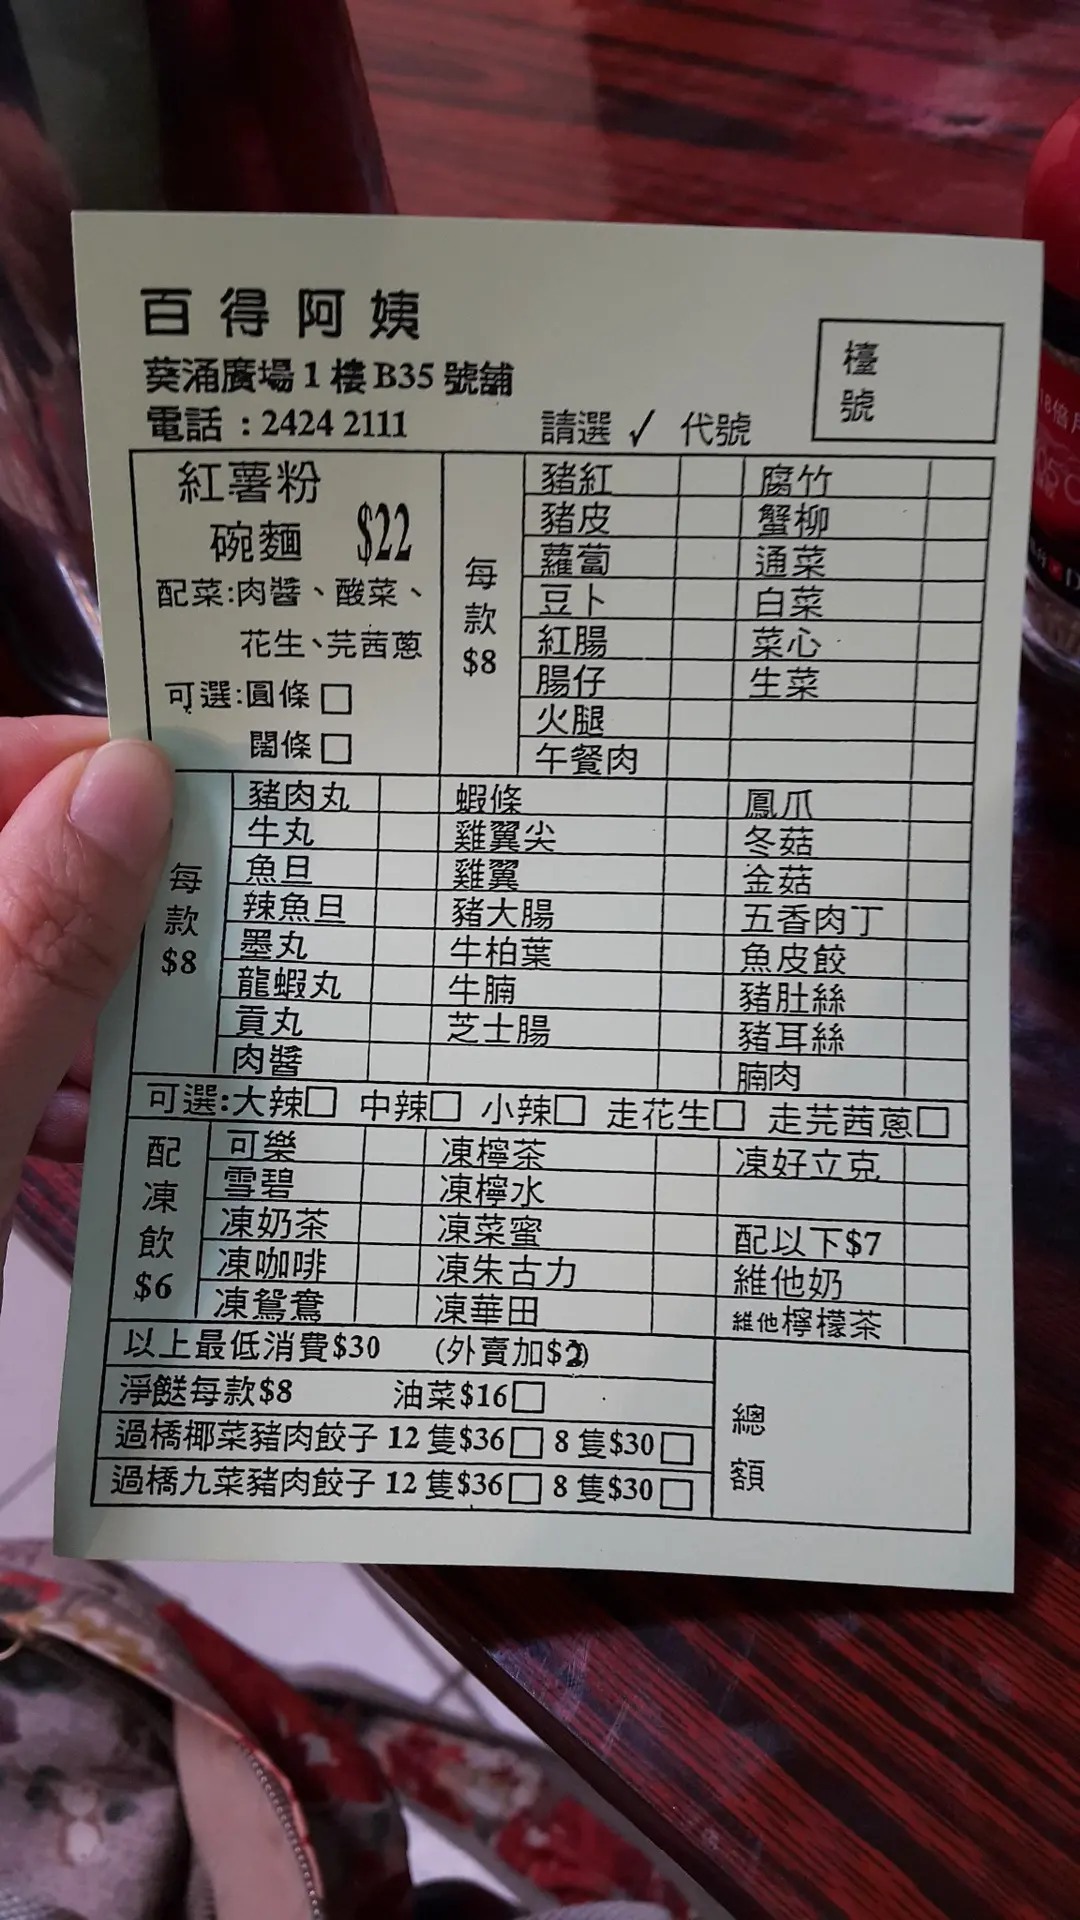 百得阿姨
葵涌廣場1樓B35號舖
電話：2424 2111
請選 ✓ 代號
檯號
紅薯粉
碗麵 $22
配菜:肉醬、酸菜、
花生、芫茜蔥
可選:圓條□
闊條□
每款$8
豬紅 腐竹
豬皮 蟹柳
蘿蔔 通菜
豆卜 白菜
紅腸 菜心
腸仔 生菜
火腿
午餐肉
每款$8
豬肉丸 蝦條 鳳爪
牛丸 雞翼尖 冬菇
魚旦 雞翼 金菇
辣魚旦 豬大腸 五香肉丁
墨丸 牛柏葉 魚皮餃
龍蝦丸 牛腩 豬肚絲
貢丸 芝士腸 豬耳絲
肉醬 腩肉
可選:大辣□ 中辣□ 小辣□ 走花生□ 走芫茜蔥□
配凍飲$6
可樂 凍檸茶 凍好立克
雪碧 凍檸水
凍奶茶 凍菜蜜 配以下$7
凍咖啡 凍朱古力 維他奶
凍鴛鴦 凍華田 維他檸檬茶
以上最低消費$30 (外賣加$2)
淨餸每款$8 油菜$16□
過橋椰菜豬肉餃子 12隻$36□ 8隻$30□
過橋九菜豬肉餃子 12隻$36□ 8隻$30□
總額